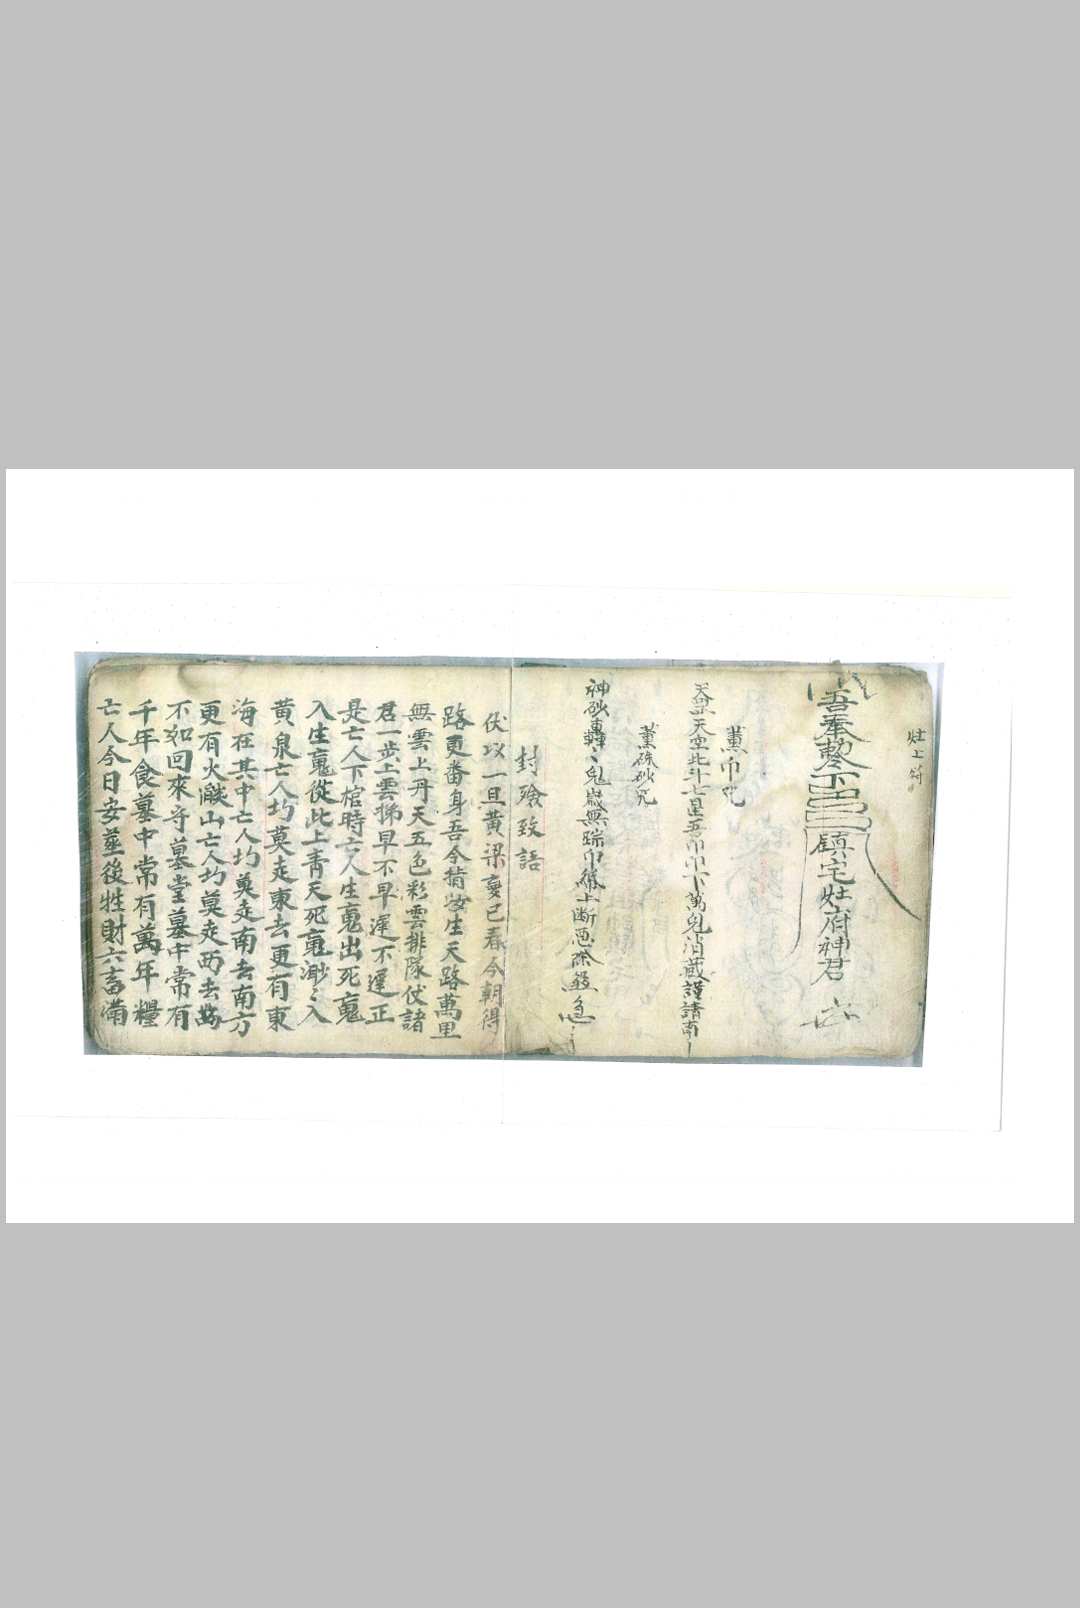 灶上符
吾奉敕下 鎮宅灶府神君
薰巾咒
天罡天空北斗七星吾巾巾下萬鬼消藏謹請南
薰硃砂咒
神砂轉〻鬼滅無踪巾 上断惡 殺急
封殮致語
伏以一旦黃梁夢已春今朝得
路更番身吾今指 生天路萬里
無雲上丹天五色彩雲排隊伏諸
君一步上雲梯早不早遲不遲正
是亡人下棺時亡人生䰟出死䰟
入生䰟從此上青天死䰟渺〻入
黃泉亡人圴莫走東去更有東
海在其中亡人圴莫走南去南方
更有火燄山亡人圴莫走西去
不如回來守墓堂墓中常有
千年食墓中常有萬年糧
亡人今日安葬後牲財六畜满